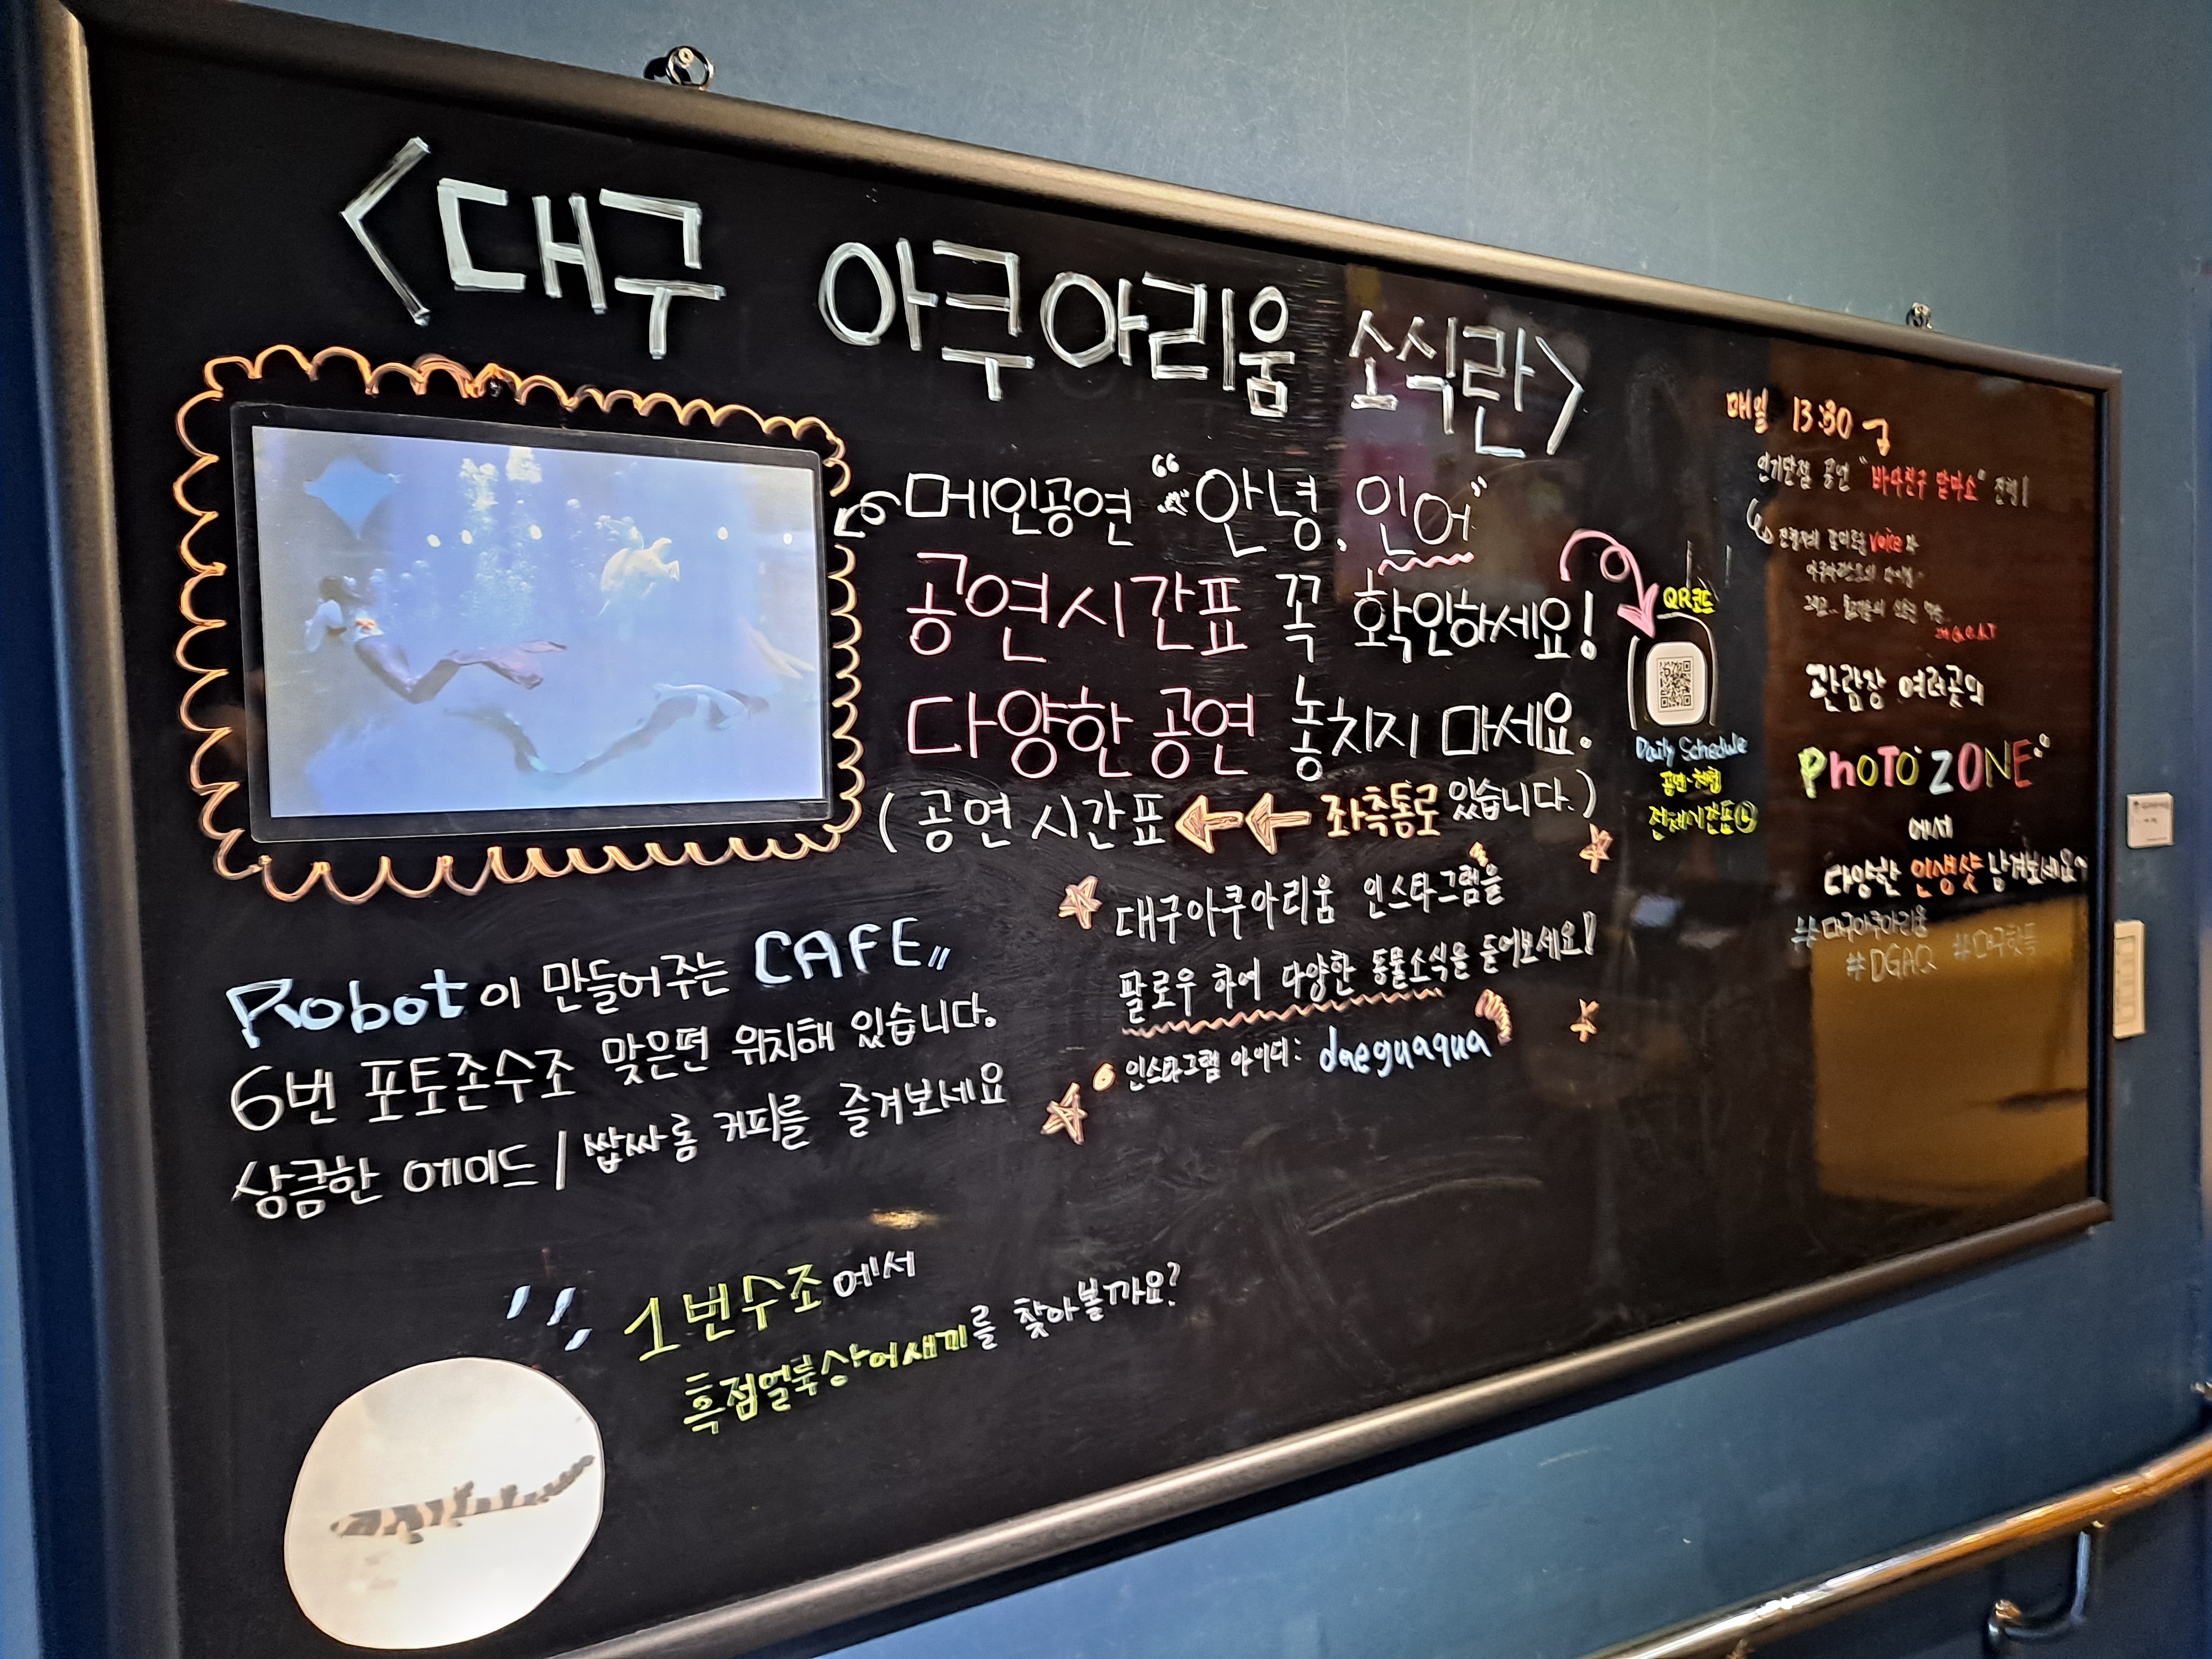 <대구 아쿠아리움 소식란>
메인공연 "안녕, 인어"
공연시간표 꼭 확인하세요!
다양한 공연 놓치지 마세요.
(공연 시간표 ←← 좌측통로 있습니다.)
QR코드
Daily Schedule
공연·체험
전체시간표
대구아쿠아리움 인스타그램을
팔로우 하여 다양한 동물소식을 듣어보세요!
인스타그램 아이디: daeguaqua
Robot이 만들어주는 CAFE
6번 포토존수조 맞은편 위치해 있습니다.
상큼한 에이드 / 쌉싸롬 커피를 즐겨보세요
1번수조에서
흑점얼룩상어새끼를 찾아볼까요?
매일 13:30
공연 "바다친구
Voice
관람장 여러곳의
PHOTO ZONE
에서
다양한 인생샷 남겨보세요
#대구아쿠아리움
#DGAQ #대구핫플